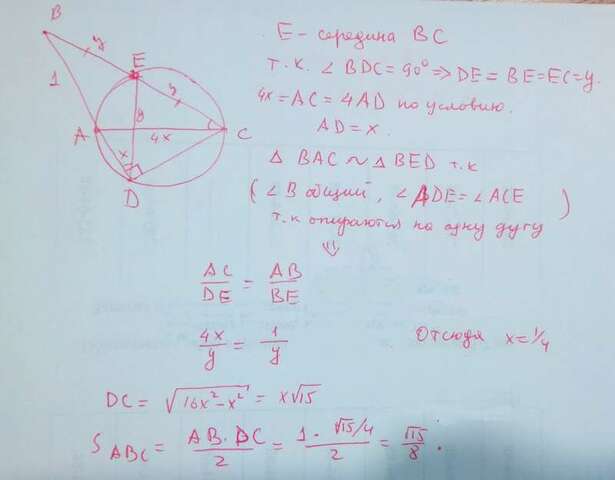 B
E
y
y
1
y
A
4x
C
x
D
E - середина BC
т.к. ∠ BDC = 90° ⇒ DE = BE = EC = y.
4x = AC = 4AD по условию.
AD = x.
Δ BAC ~ Δ BED т.к
( ∠ B общий, ∠ ADE = ∠ ACE )
т.к опираются на одну дугу
⇓
AC/DE = AB/BE
4x/y = 1/y
Отсюда x = 1/4
DC = √(16x² - x²) = x√15
S ABC = AB·DC/2 = 1·√15/4/2 = √15/8.